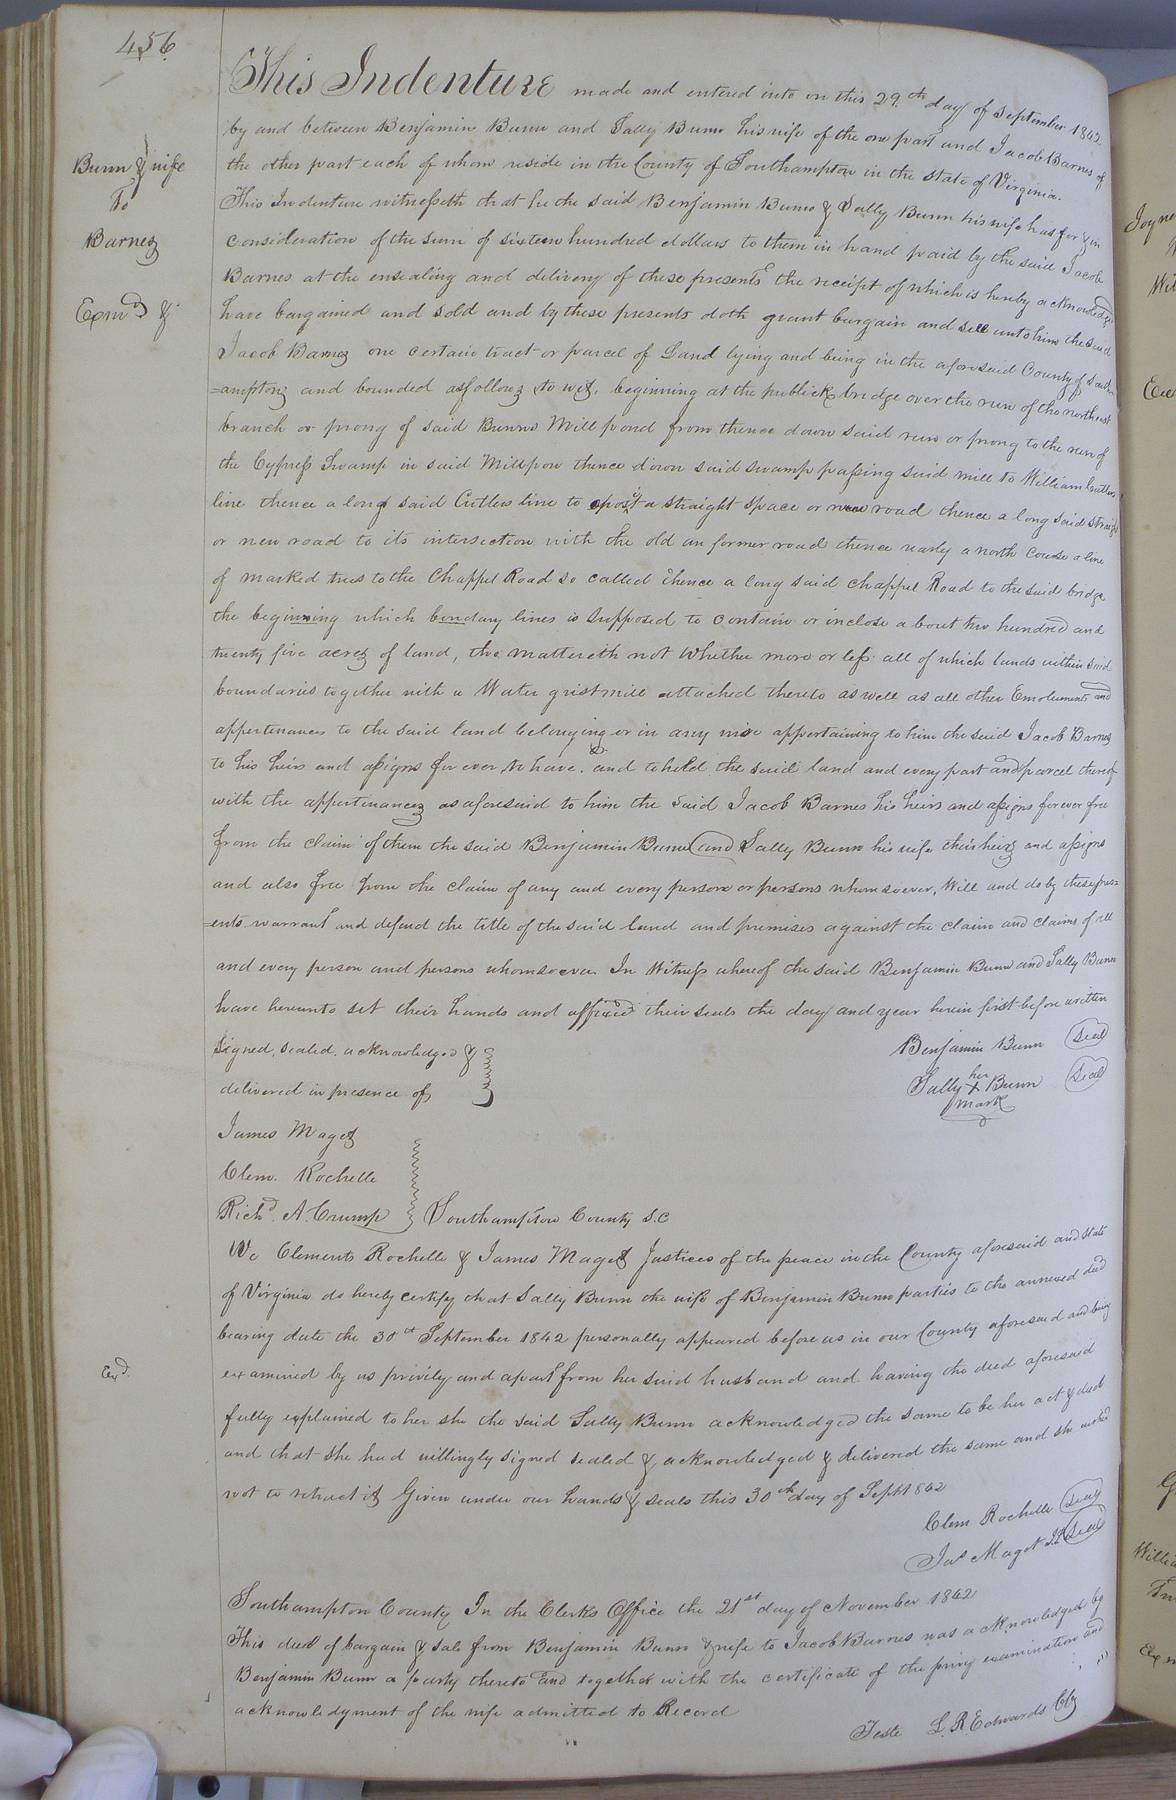 456
This Indenture made and entered into on this 29th day of September 1842
by and between Benjamin Bunn and Sally Bunn his wife of the one part and Jacob Barnes of
the other part each of whom reside in the County of Southampton in the State of Virginia.
This Indenture witnesseth that he the said Benjamin Bunn & Sally Bunn his wife has for & in
consideration of the sum of sixteen hundred dollars to them in hand paid by the said Jacob
Barnes at the ensealing and delivery of these presents the receipt of which is hereby acknowledged
have bargained and sold and by these presents doth grant bargain and sell unto him the said
Jacob Barnes one certain tract or parcel of Land lying and being in the aforesaid County of South
=ampton and bounded as follows to wit, beginning at the publick bridge over the run of the north east
branch or prong of said Bunns Mill pond from thence down said run or prong to the run of
the Cypress Swamp in said Millpon thence down said swamp passing said mill to William Cutlers
line thence a long said Cutlers line to a straight space or new road thence a long said straight
or new road to its intersection with the old an former road thence nearly a north Course a line
of marked trees to the Chappel Road so called thence a long said Chappel Road to the said bridge
the beginning which bondary lines is supposed to contain or inclose about two hundred and
twenty five acres of land, the mattereth not whether more or less all of which lands within said
boundaries together with a Water grist mill attached thereto as well as all other Emoluments and
appertenances to the said land belonging or in any wise appertaining to him the said Jacob Barnes
to his heirs and assigns for ever, to have and to hold the said land and every part and parcel thereof
with the appertenances as aforesaid to him the said Jacob Barnes his heirs and assigns forever free
from the claim of them the said Benjamin Bunn and Sally Bunn his wife their heirs and assigns
and also free from the claim of any and every person or persons whomsoever, Will and do by these pres=
=ents warrant and defend the title of the said land and premises against the claim and claims of all
and every person and persons whomsoever In Witness whereof the said Benjamin Bunn and Sally Bunn
have hereunto set their hands and affixed their seals the day and year herein first before written
Signed, sealed, acknowledged &
delivered in presence of
Benjamin Bunn Seal
Sally her X mark Bunn Seal
James Maget
Clem. Rochelle
Richd. A. Crump
Southampton County S.C
We Clements Rochelle & James Maget Justices of the peace in the County aforesaid and State
of Virginia do hereby certify that Sally Bunn the wife of Benjamin Bunn parties to the annexed deed
bearing date the 30th September 1842 personally appeared before us in our County aforesaid and being
examined by us privily and apart from her said husband and having the deed aforesaid
fully explained to her she the said Sally Bunn acknowledged the same to be her act & deed
and that she had willingly signed sealed & acknowledged & delivered the same and she wished
not to retract it Given under our hands & seals this 30th day of Sept 1842
Clem Rochelle Seal
Jas Maget Seal
Southampton County In the Clerks Office the 21st day of November 1842
This deed of bargain & sale from Benjamin Bunn & wife to Jacob Barnes was acknowledged by
Benjamin Bunn a party thereto and together with the certificate of the privy examination and
acknowledgment of the wife admitted to Record
Teste L. R. Edwards Clk
Bunn & wife
To
Barnes
Exmd &
Exd.